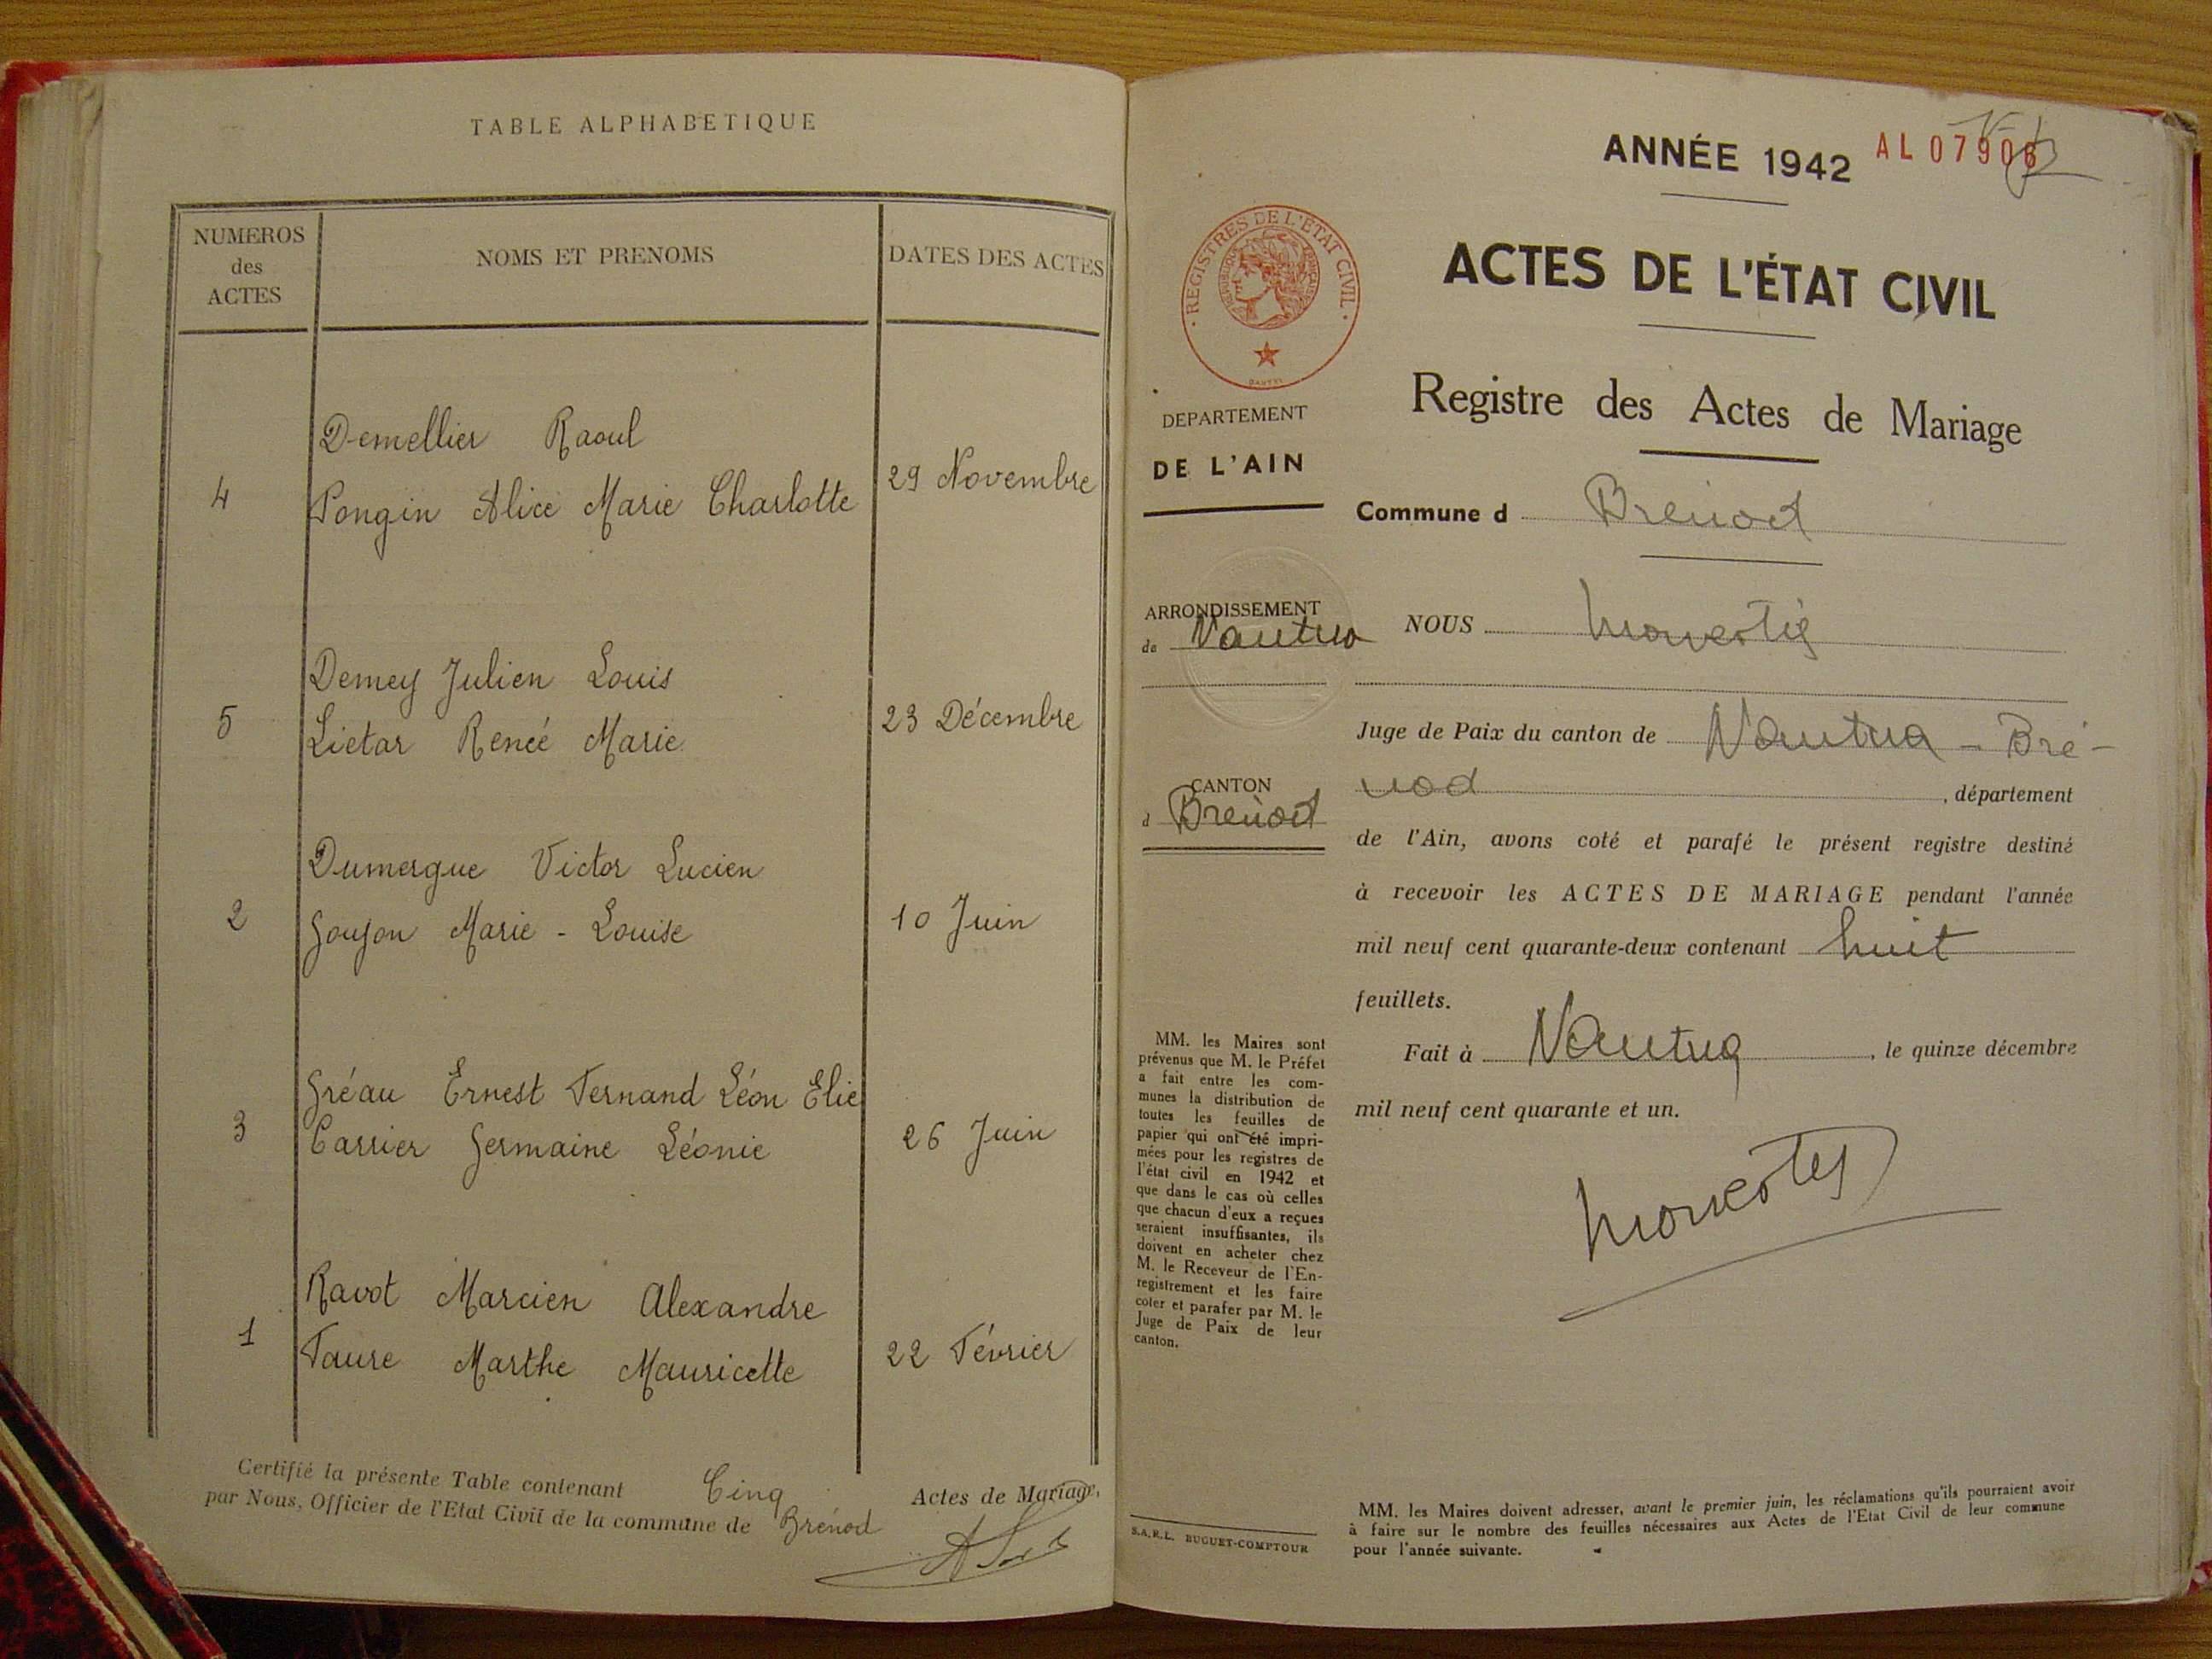 TABLE ALPHABETIQUE
NUMEROS
des
ACTES
NOMS ET PRENOMS
DATES DES ACTES
Demellier Raoul
4
Pongin Alice Marie Charlotte
29 Novembre
Demey Julien Louis
5
Lietar Renée Marie
23 Décembre
Dumergue Victor Lucien
2
Goujon Marie - Louise
10 Juin
Gréau Ernest Fernand Léon Elie
3
Carrier Germaine Léonie
26 Juin
Ravot Marcien Alexandre
1
Faure Marthe Mauricette
22 Février
Certifié la présente Table contenant Cinq Actes de Mariage,
par Nous, Officier de l'Etat Civil de la commune de Brénod
ANNÉE 1942
AL 07906
REGISTRES DE L'ÉTAT CIVIL
ACTES DE L'ÉTAT CIVIL
Registre des Actes de Mariage
DEPARTEMENT
DE L'AIN
Commune d Brenod
ARRONDISSEMENT
de Nantua
NOUS
Juge de Paix du canton de Nantua - Bré-
nod, département
CANTON
d Brenod
de l'Ain, avons coté et parafé le présent registre destiné
à recevoir les ACTES DE MARIAGE pendant l'année
mil neuf cent quarante-deux contenant huit
feuillets.
Fait à Nantua, le quinze décembre
mil neuf cent quarante et un.
MM. les Maires sont
prévenus que M. le Préfet
a fait entre les com-
munes la distribution de
toutes les feuilles de
papier qui ont été impri-
mées pour les registres de
l'état civil en 1942 et
que dans le cas où celles
que chacun d'eux a reçues
seraient insuffisantes, ils
doivent en acheter chez
M. le Receveur de l'En-
registrement et les faire
coter et parafer par M. le
Juge de Paix de leur
canton.
S.A.R.L. BUGUET-COMPTOUR
MM. les Maires doivent adresser, avant le premier juin, les réclamations qu'ils pourraient avoir
à faire sur le nombre des feuilles nécessaires aux Actes de l'Etat Civil de leur commune
pour l'année suivante.